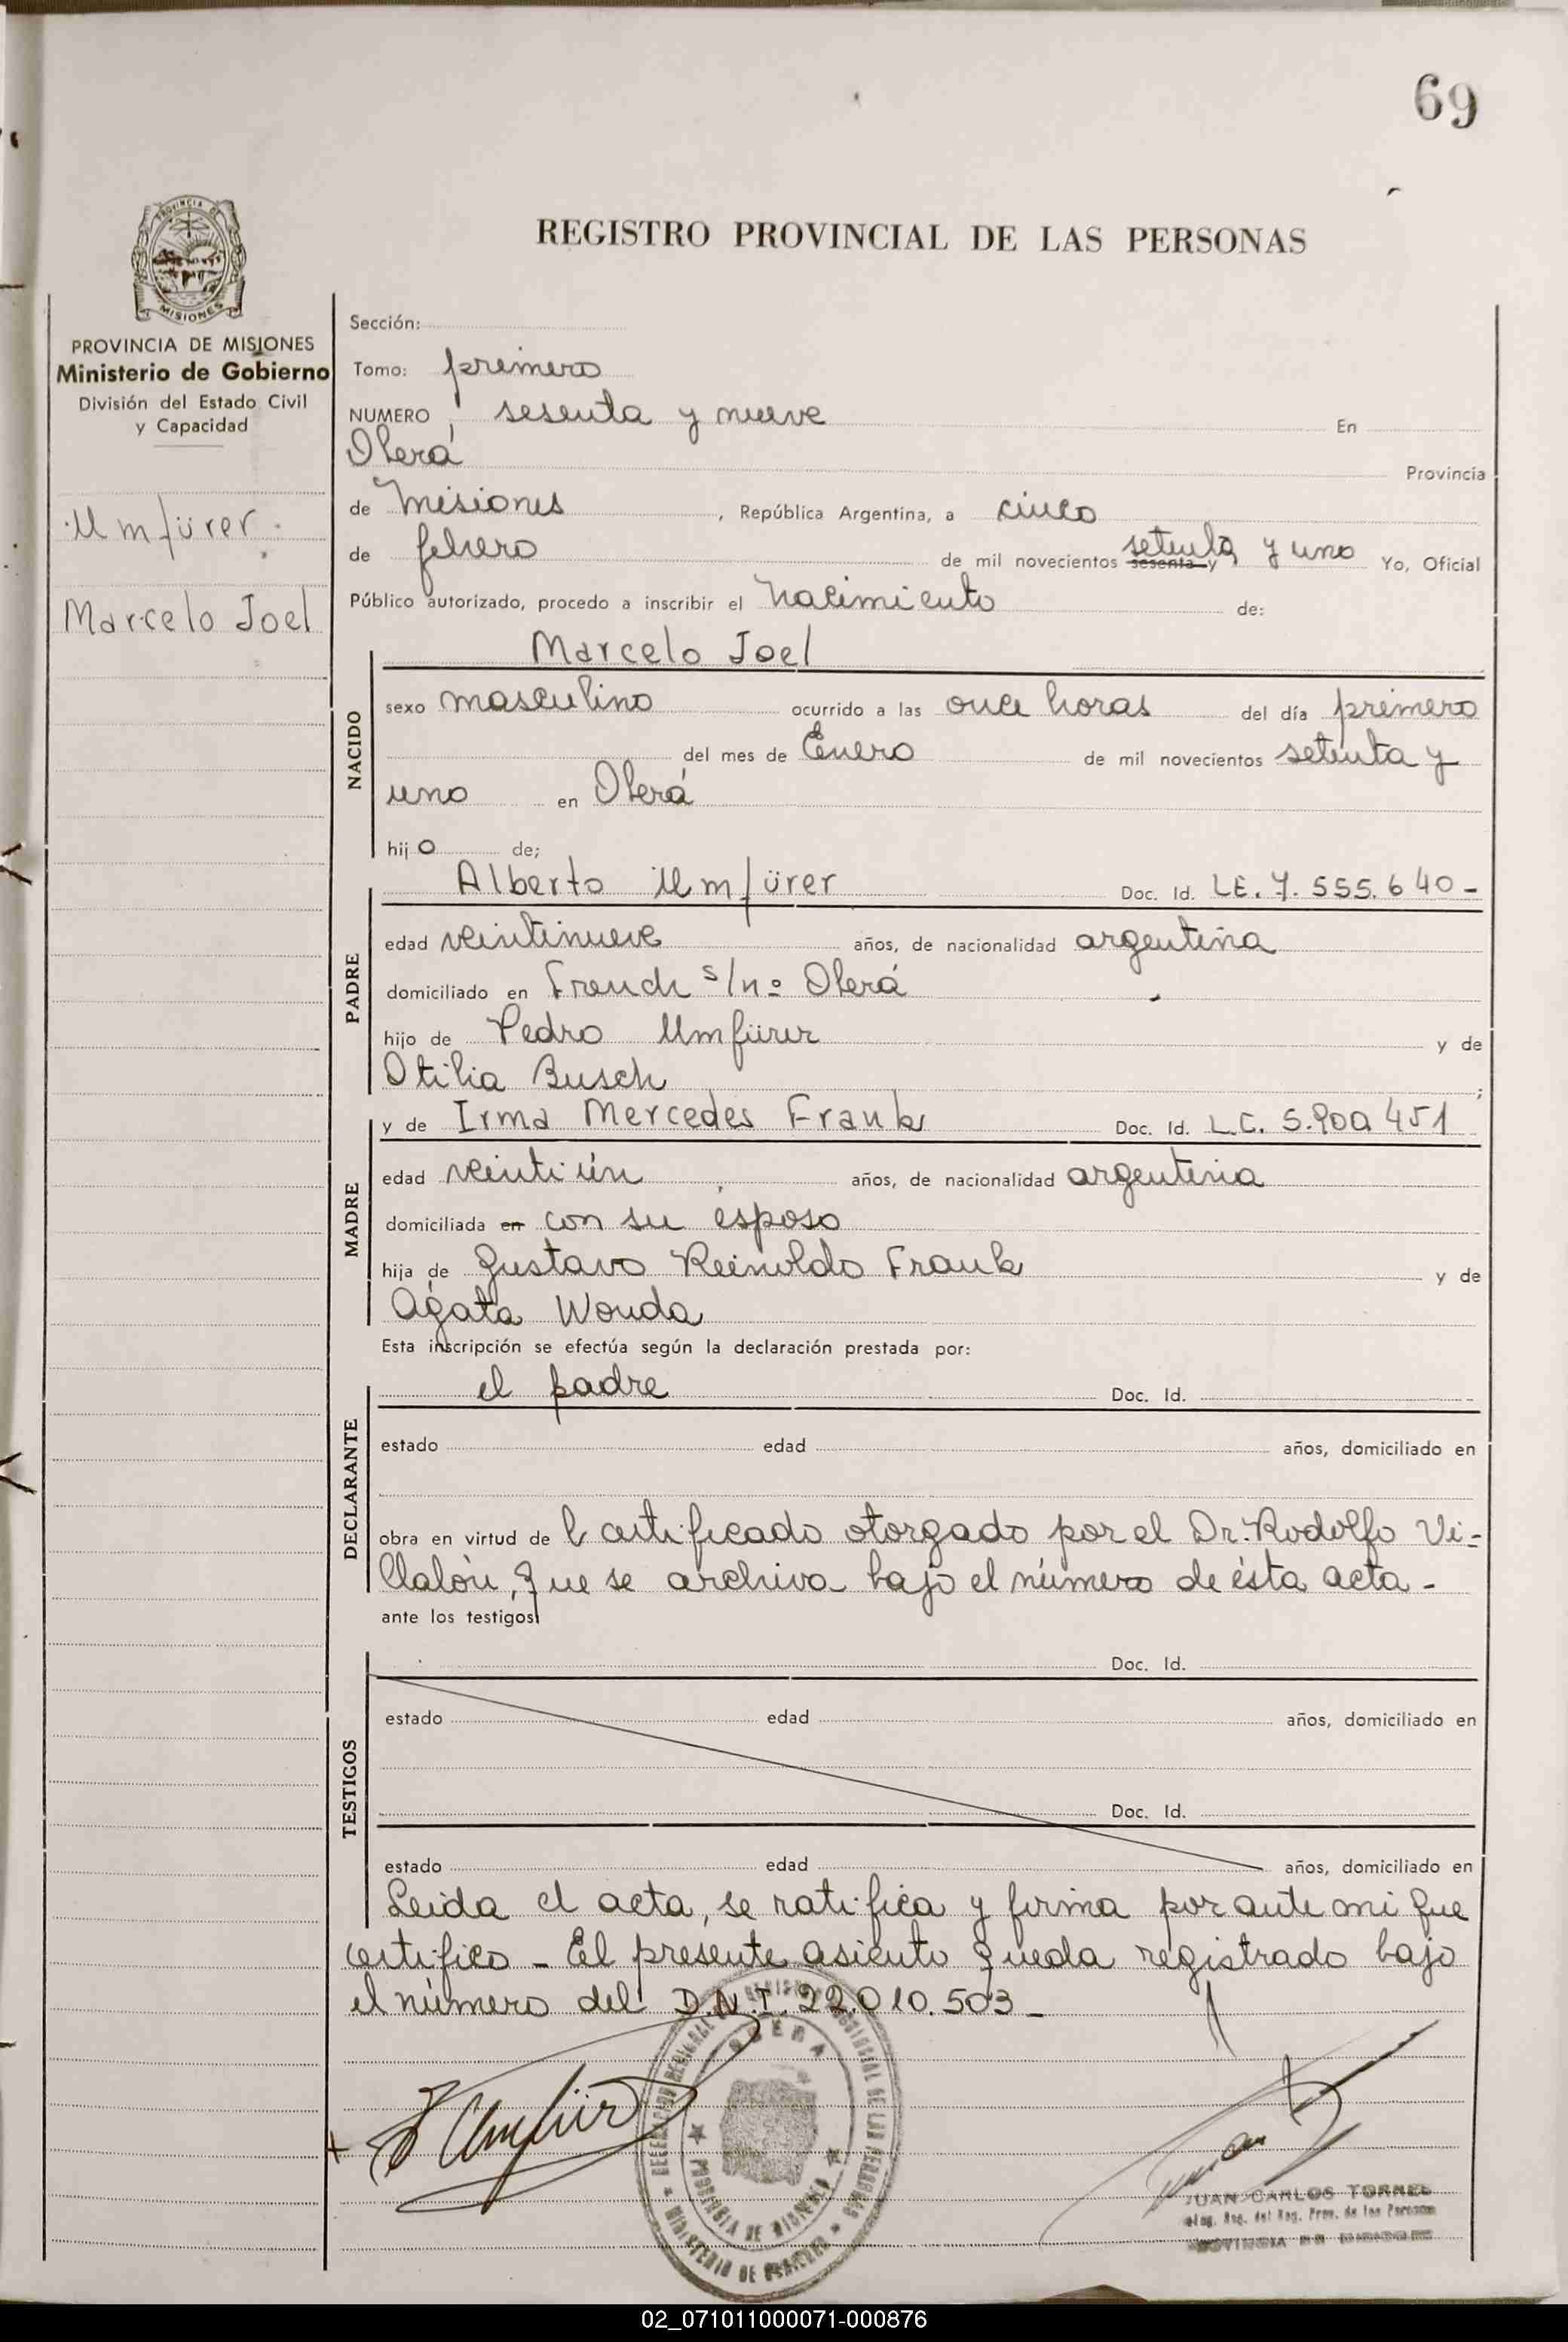 69
PROVINCIA DE
MISIONES
REGISTRO PROVINCIAL DE LAS PERSONAS
PROVINCIA DE MISIONES
Ministerio de Gobierno
División del Estado Civil
y Capacidad
Umfürer
Marcelo Joel
Sección:
Tomo: primero
NUMERO sesenta y nueve En
Oberá Provincia
de Misiones, República Argentina, a cinco
de febrero de mil novecientos sesenta y setenta y uno Yo, Oficial
Público autorizado, procedo a inscribir el nacimiento de:
Marcelo Joel
NACIDO
sexo masculino ocurrido a las once horas del día primero
del mes de Enero de mil novecientos setenta y
uno en Oberá
hijo de;
PADRE
Alberto Umfürer Doc. Id. LE. 7.555.640-
edad veintinueve años, de nacionalidad argentina
domiciliado en French s/nº Oberá
hijo de Pedro Umfürer y de
Otilia Busch ;
MADRE
y de Irma Mercedes Frank Doc. Id. L.C. 5.900.451
edad veintiún años, de nacionalidad argentina
domiciliada en con su esposo
hija de Gustavo Reinoldo Frank y de
Agata Wonda
Esta inscripción se efectúa según la declaración prestada por:
DECLARANTE
el padre Doc. Id.
estado edad años, domiciliado en
obra en virtud de l certificado otorgado por el Dr. Rodolfo Vi-
llalòn, que se archiva bajo el número de ésta acta-
ante los testigos
TESTIGOS
Doc. Id.
estado edad años, domiciliado en
Doc. Id.
estado edad años, domiciliado en
Leida el acta, se ratifica y firma por ante mi que
certifico - El presente asiento queda registrado bajo
el número del D.N.I. 22.010.503-
Umfürer
OBERA
PROVINCIA DE MISIONES
MINISTERIO DE GOBIERNO
JUAN CARLOS TORRES
del Reg. Prov. de las Personas
PROVINCIA DE MISIONES
02_071011000071-000876